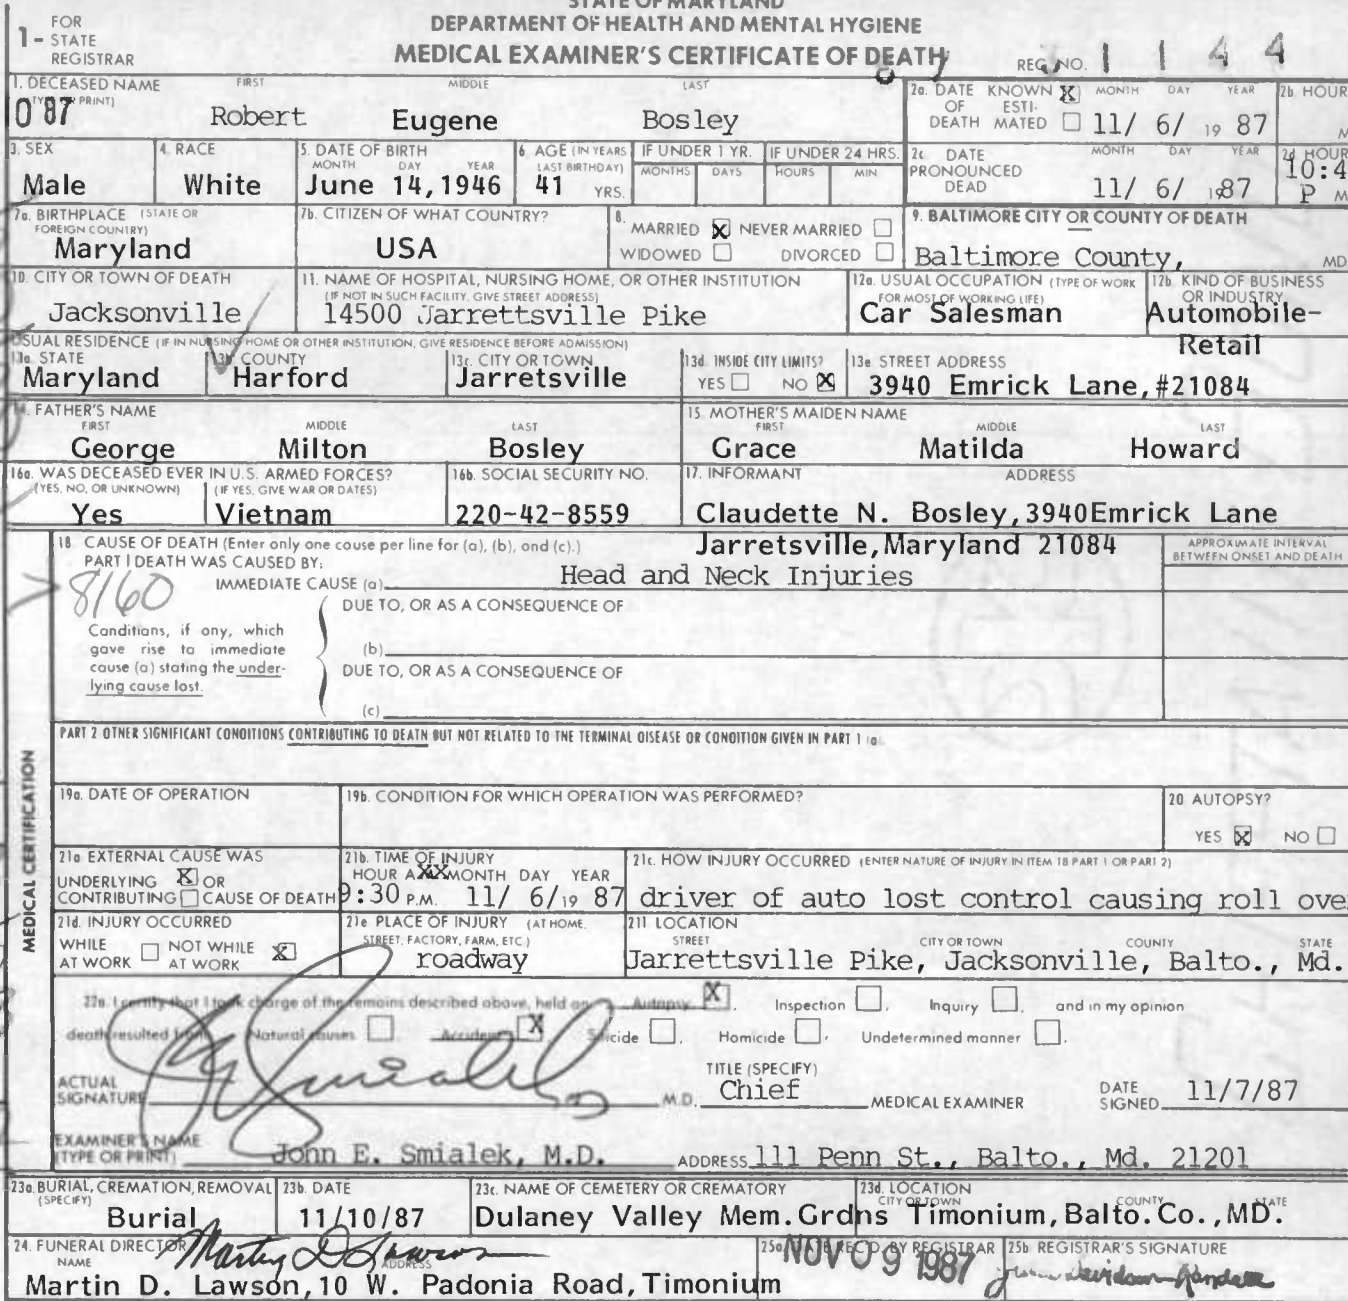 STATE OF MARYLAND
DEPARTMENT OF HEALTH AND MENTAL HYGIENE
MEDICAL EXAMINER'S CERTIFICATE OF DEATH
1- FOR STATE REGISTRAR
REG. NO. 1 1 4 4
1. DECEASED NAME FIRST MIDDLE LAST
(TYPE OR PRINT)
087
Robert Eugene Bosley
2a. DATE OF DEATH KNOWN X ESTIMATED MONTH DAY YEAR 2b. HOUR
11/ 6/ 19 87 M
3. SEX 4. RACE 5. DATE OF BIRTH 6. AGE (IN YEARS IF UNDER 1 YR. IF UNDER 24 HRS.
MONTH DAY YEAR LAST BIRTHDAY) MONTHS DAYS HOURS MIN
Male White June 14,1946 41 YRS.
2c. DATE PRONOUNCED DEAD MONTH DAY YEAR 2d HOUR
11/ 6/ 1987 10:4 P M
7a. BIRTHPLACE (STATE OR FOREIGN COUNTRY)
Maryland
7b. CITIZEN OF WHAT COUNTRY?
USA
8. MARRIED X NEVER MARRIED
WIDOWED DIVORCED
9. BALTIMORE CITY OR COUNTY OF DEATH
Baltimore County, MD
10. CITY OR TOWN OF DEATH
Jacksonville
11. NAME OF HOSPITAL, NURSING HOME, OR OTHER INSTITUTION
(IF NOT IN SUCH FACILITY, GIVE STREET ADDRESS)
14500 Jarrettsville Pike
12a. USUAL OCCUPATION (TYPE OF WORK FOR MOST OF WORKING LIFE)
Car Salesman
12b. KIND OF BUSINESS OR INDUSTRY
Automobile-
Retail
USUAL RESIDENCE (IF IN NURSING HOME OR OTHER INSTITUTION, GIVE RESIDENCE BEFORE ADMISSION)
13a. STATE 13b. COUNTY 13c. CITY OR TOWN 13d. INSIDE CITY LIMITS? 13e STREET ADDRESS
Maryland Harford Jarretsville YES NO X 3940 Emrick Lane,#21084
14. FATHER'S NAME
FIRST MIDDLE LAST
George Milton Bosley
15. MOTHER'S MAIDEN NAME
FIRST MIDDLE LAST
Grace Matilda Howard
16a. WAS DECEASED EVER IN U.S. ARMED FORCES?
(YES, NO, OR UNKNOWN) (IF YES, GIVE WAR OR DATES)
Yes Vietnam
16b. SOCIAL SECURITY NO.
220-42-8559
17. INFORMANT ADDRESS
Claudette N. Bosley,3940Emrick Lane
Jarretsville,Maryland 21084
MEDICAL CERTIFICATION
18. CAUSE OF DEATH (Enter only one cause per line for (a), (b), and (c).)
APPROXIMATE INTERVAL BETWEEN ONSET AND DEATH
PART I DEATH WAS CAUSED BY:
IMMEDIATE CAUSE (a) Head and Neck Injuries
8160
DUE TO, OR AS A CONSEQUENCE OF
Conditions, if any, which gave rise to immediate cause (a) stating the underlying cause lost.
(b)
DUE TO, OR AS A CONSEQUENCE OF
(c)
PART 2 OTHER SIGNIFICANT CONDITIONS CONTRIBUTING TO DEATH BUT NOT RELATED TO THE TERMINAL DISEASE OR CONDITION GIVEN IN PART 1 (a
19a. DATE OF OPERATION
19b. CONDITION FOR WHICH OPERATION WAS PERFORMED?
20 AUTOPSY?
YES X NO
21a EXTERNAL CAUSE WAS
UNDERLYING X OR
CONTRIBUTING CAUSE OF DEATH
21b. TIME OF INJURY
HOUR A XX MONTH DAY YEAR
9:30 P.M. 11/ 6/19 87
21c. HOW INJURY OCCURRED (ENTER NATURE OF INJURY IN ITEM 18 PART 1 OR PART 2)
driver of auto lost control causing roll over
21d. INJURY OCCURRED
WHILE AT WORK NOT WHILE AT WORK X
21e PLACE OF INJURY (AT HOME, STREET, FACTORY, FARM, ETC.)
roadway
21f LOCATION
STREET CITY OR TOWN COUNTY STATE
Jarrettsville Pike, Jacksonville, Balto., Md.
22a. I certify that I took charge of the remains described above, held an Autopsy X, Inspection , Inquiry , and in my opinion
death resulted from Natural causes Accident X Suicide , Homicide , Undetermined manner .
ACTUAL SIGNATURE M.D.
TITLE (SPECIFY)
Chief MEDICAL EXAMINER
DATE SIGNED 11/7/87
EXAMINER'S NAME
(TYPE OR PRINT) John E. Smialek, M.D. ADDRESS 111 Penn St., Balto., Md. 21201
23a. BURIAL, CREMATION, REMOVAL (SPECIFY) 23b. DATE 23c. NAME OF CEMETERY OR CREMATORY 23d. LOCATION
CITY OR TOWN COUNTY STATE
Burial 11/10/87 Dulaney Valley Mem.Grdns Timonium,Balto.Co.,MD.
24. FUNERAL DIRECTOR
NAME ADDRESS
Martin D Lawson
Martin D. Lawson,10 W. Padonia Road,Timonium
25a. REC'D. BY REGISTRAR
NOV 09 1987
25b. REGISTRAR'S SIGNATURE